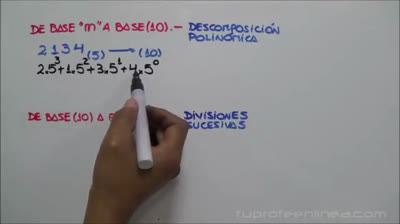 DE BASE "m" A BASE(10).- DESCOMPOSICIÓN
POLINÓMICA
2134(5) → (10)
2.5³+1.5²+3.5¹+4.5⁰
DE BASE(10) A DIVISIONES
SUCESIVAS
tuprofeenlinea.com